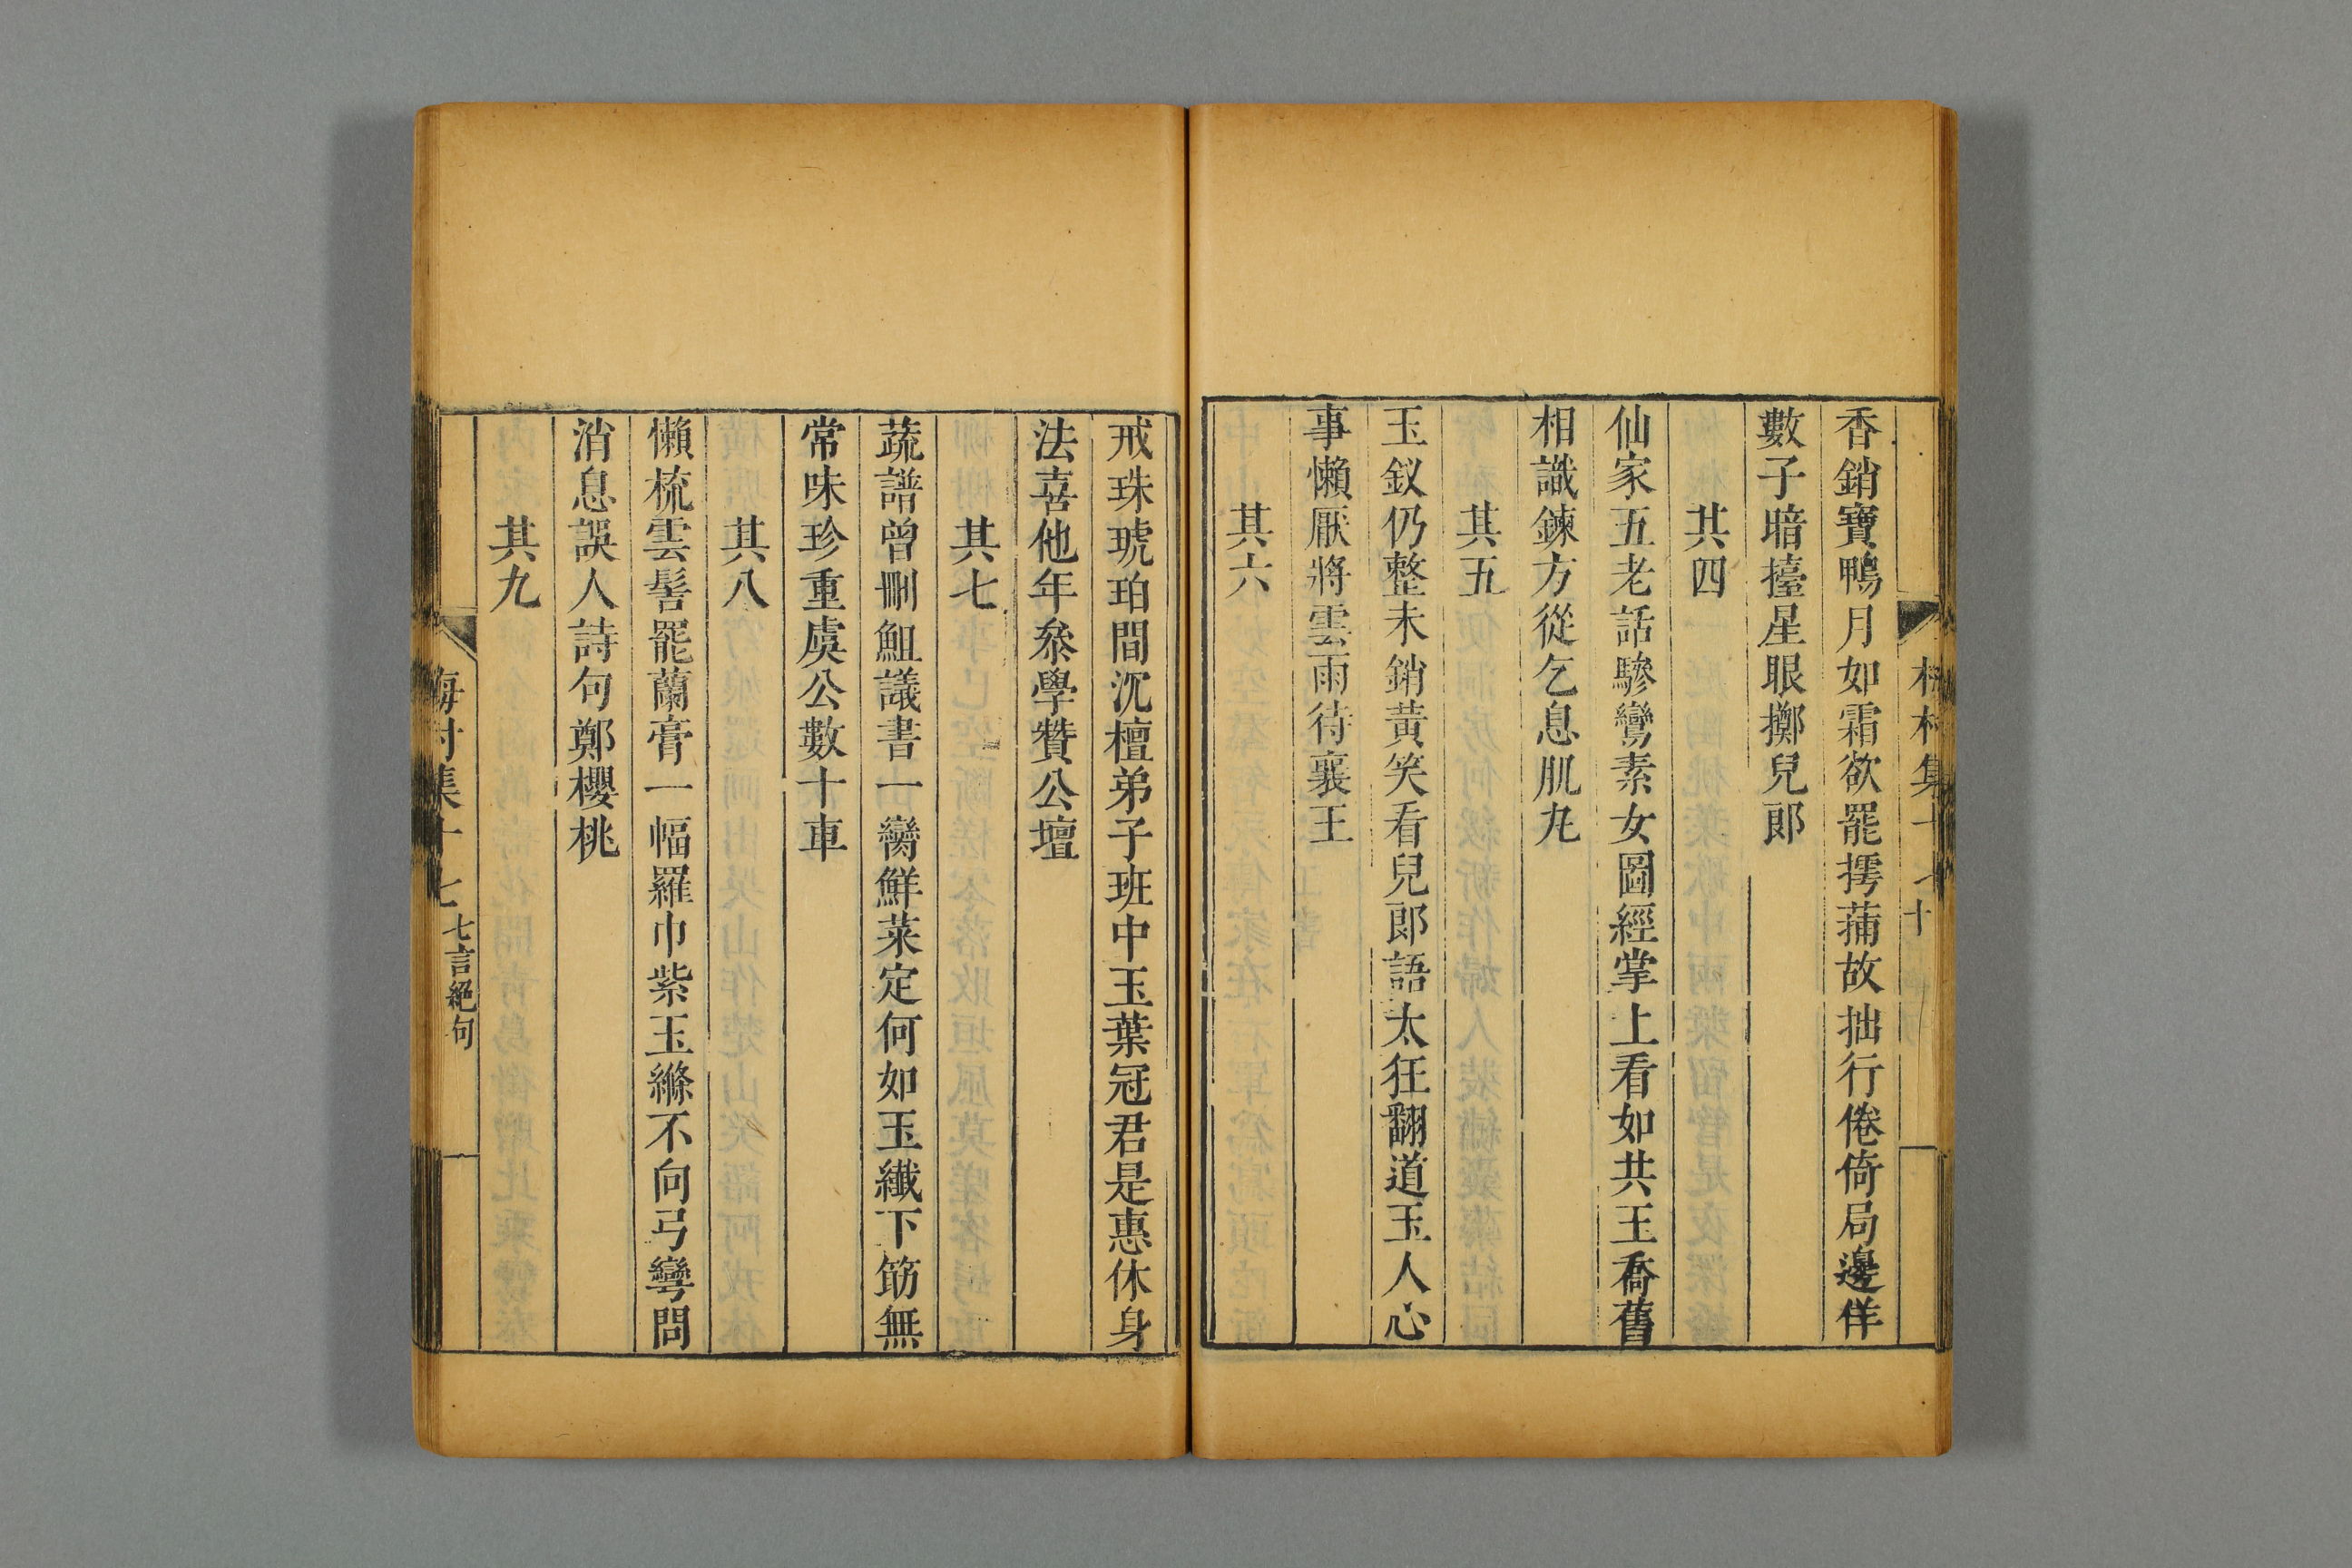 香銷寶鴨月如霜欲罷摴蒱故拙行倦倚局邊佯
數子暗擡星眼擲兒郎
其四
仙家五老話驂鸞素女圖經掌上看如共王喬舊
相識鍊方從乞息肌丸
其五
玉釵仍整未銷黃笑看兒郎語太狂翻道玉人心
事懶厭將雲雨待襄王
其六
戒珠琥珀間沉檀弟子班中玉葉冠君是惠休身
法喜他年叅學贊公壇
其七
蔬譜曾刪鮓議書一臠鮮菜定何如玉纖下筯無
常味珍重虞公數十車
其八
懶梳雲髻罷蘭膏一幅羅巾紫玉縧不向弓彎問
消息誤人詩句鄭櫻桃
其九
梅村集十七
七言絕句